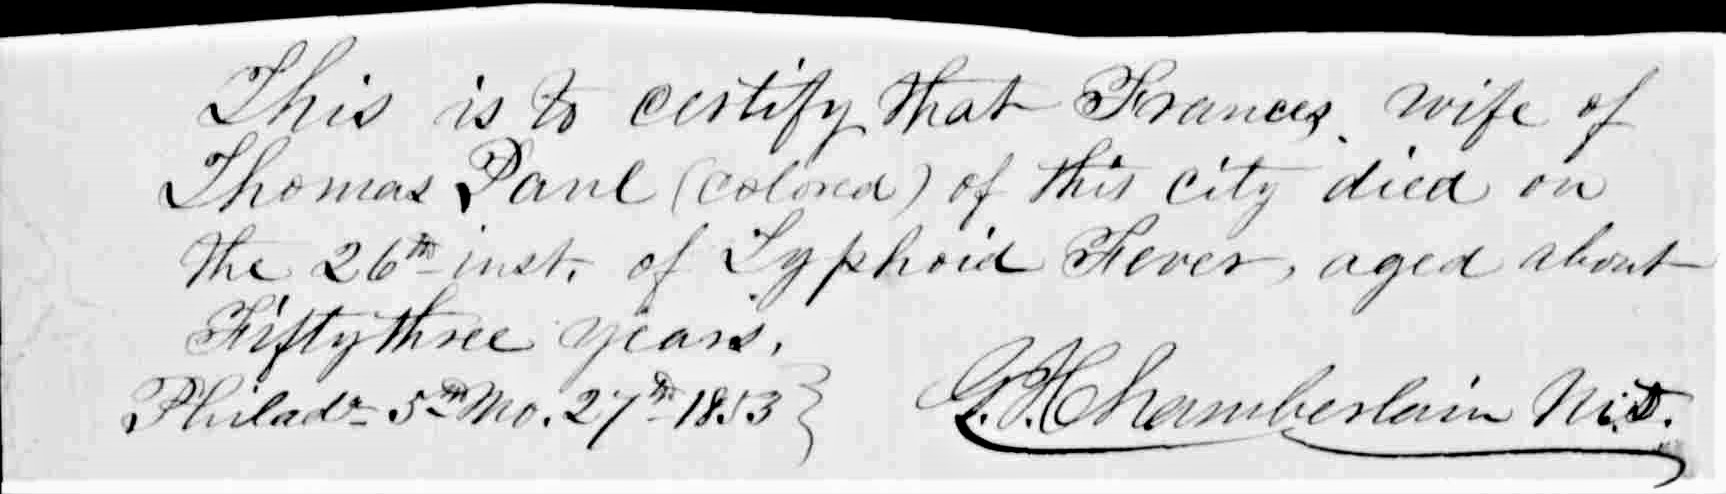 This is to certify that Frances, wife of
Thomas Paul (colored) of this city died on
the 26th inst. of Typhoid Fever, aged about
Fifty three years.
Philada 5th Mo. 27th 1853 } G. Chamberlain M.D.